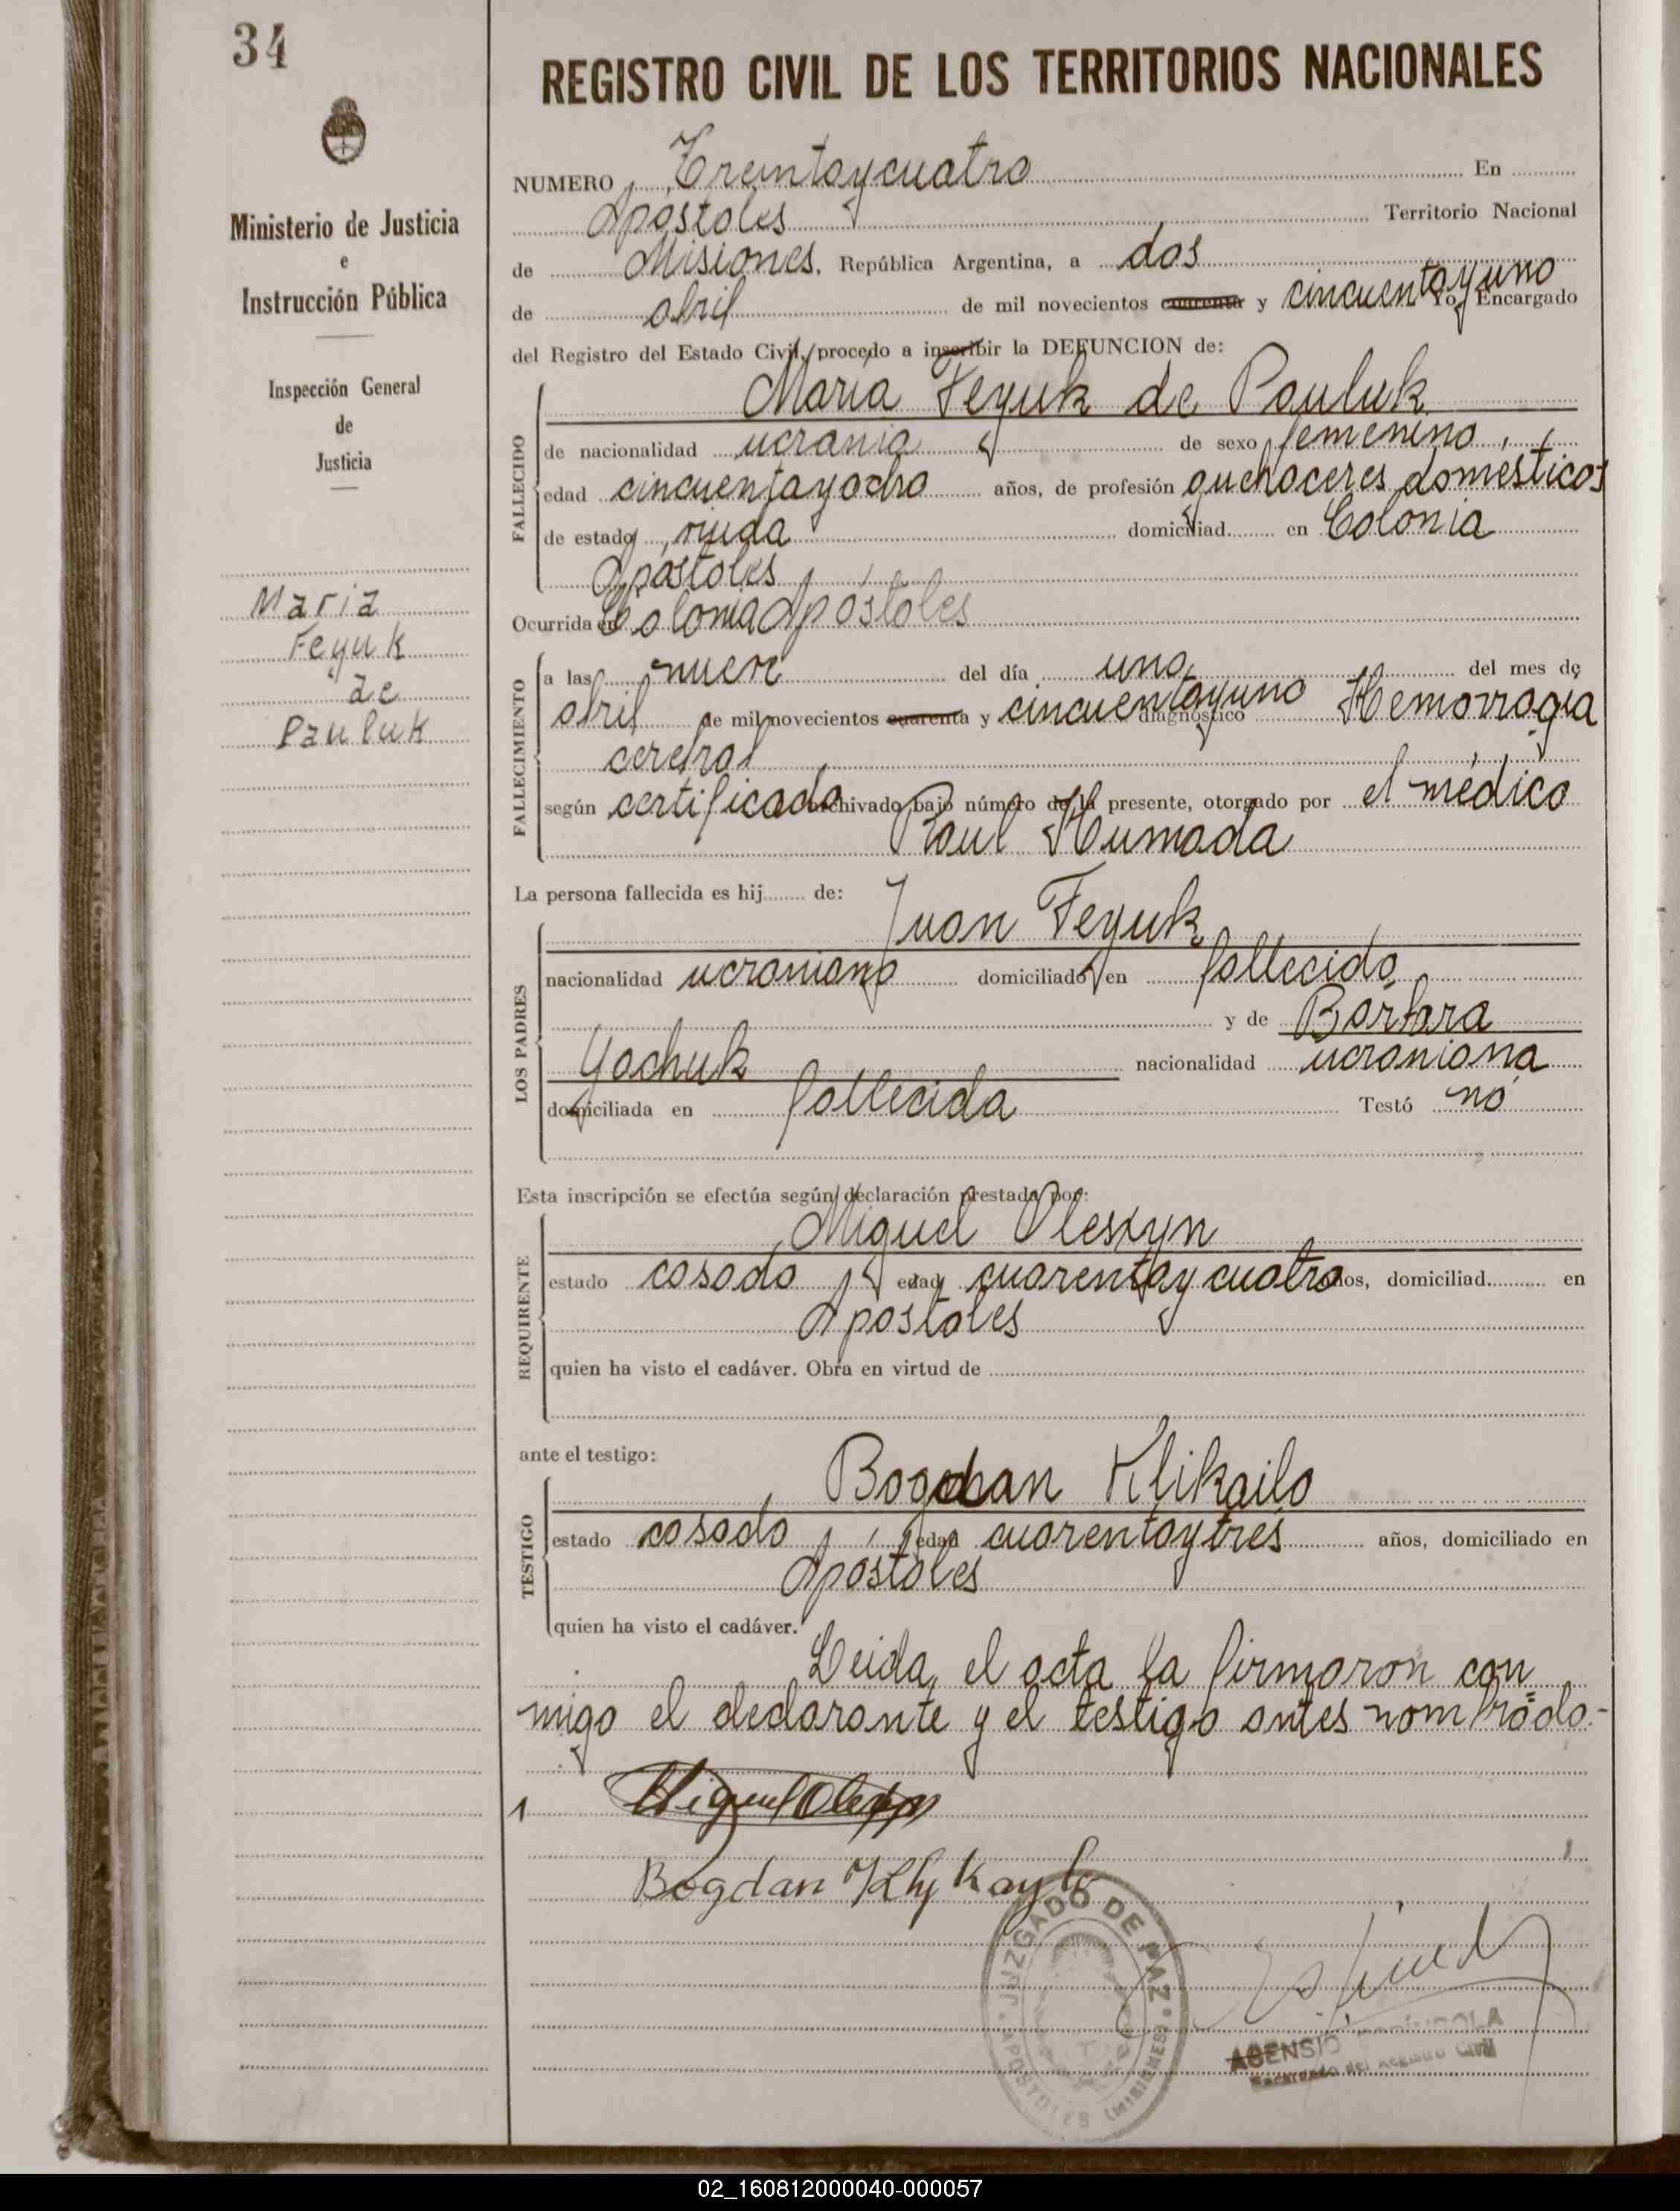 34
Ministerio de Justicia
e
Instrucción Pública
Inspección General
de
Justicia
Maria
Feyuk
de
Pauluk
REGISTRO CIVIL DE LOS TERRITORIOS NACIONALES
NUMERO Treintaycuatro En
Apostoles Territorio Nacional
de Misiones. República Argentina, a dos
de abril de mil novecientos cuarenta y cincuentayuno Yo, Encargado
del Registro del Estado Civil, procedo a inscribir la DEFUNCION de:
Maria Feyuk de Pauluk
FALLECIDO
de nacionalidad ucrania de sexo femenino
edad cincuentayocho años, de profesión quehaceres domesticos
de estado viuda domiciliad en Colonia
Apostoles
Ocurrida en Colonia Apóstoles
FALLECIMIENTO
a las nueve del día uno del mes de
abril de mil novecientos cuarenta y cincuentayuno diagnóstico Hemorragia
cerebral
según certificado archivado bajo número de la presente, otorgado por el médico
Raul Humada
La persona fallecida es hij de:
LOS PADRES
Juan Feyuk
nacionalidad ucraniano domiciliado en fallecido
y de Barbara
Yachuk nacionalidad ucraniana
domiciliada en fallecida Testó no
Esta inscripción se efectúa según declaración prestada por:
REQUIRENTE
Miguel Olexyn
estado casado edad cuarentaycuatro años, domiciliad en
Apostoles
quien ha visto el cadáver. Obra en virtud de
ante el testigo:
TESTIGO
Bogdan Klikailo
estado casado edad cuarentaytres años, domiciliado en
Apostoles
quien ha visto el cadáver.
Leida el acta la firmaron con
migo el declarante y el testigo antes nombrado.-
Miguel Olexyn
Bogdan Klykaylo
JUZGADO DE PAZ
APOSTOLES (MISIONES)
ASENSIO
Encargado del Registro Civil
02_160812000040-000057